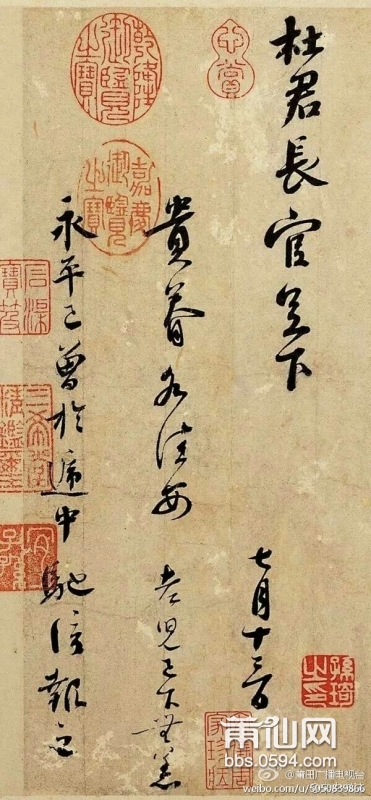 杜君長官足下
七月十三日
貴眷各佳安 老兒已下無恙
永平已曾於遞中馳信報之
乾隆御覽之寶
嘉慶御覽之寶
石渠寶笈
三希堂精鑑璽
宜子孫
莆仙网
bbs.0594.com
@莆田广播电视台
weibo.com/u/5050839866